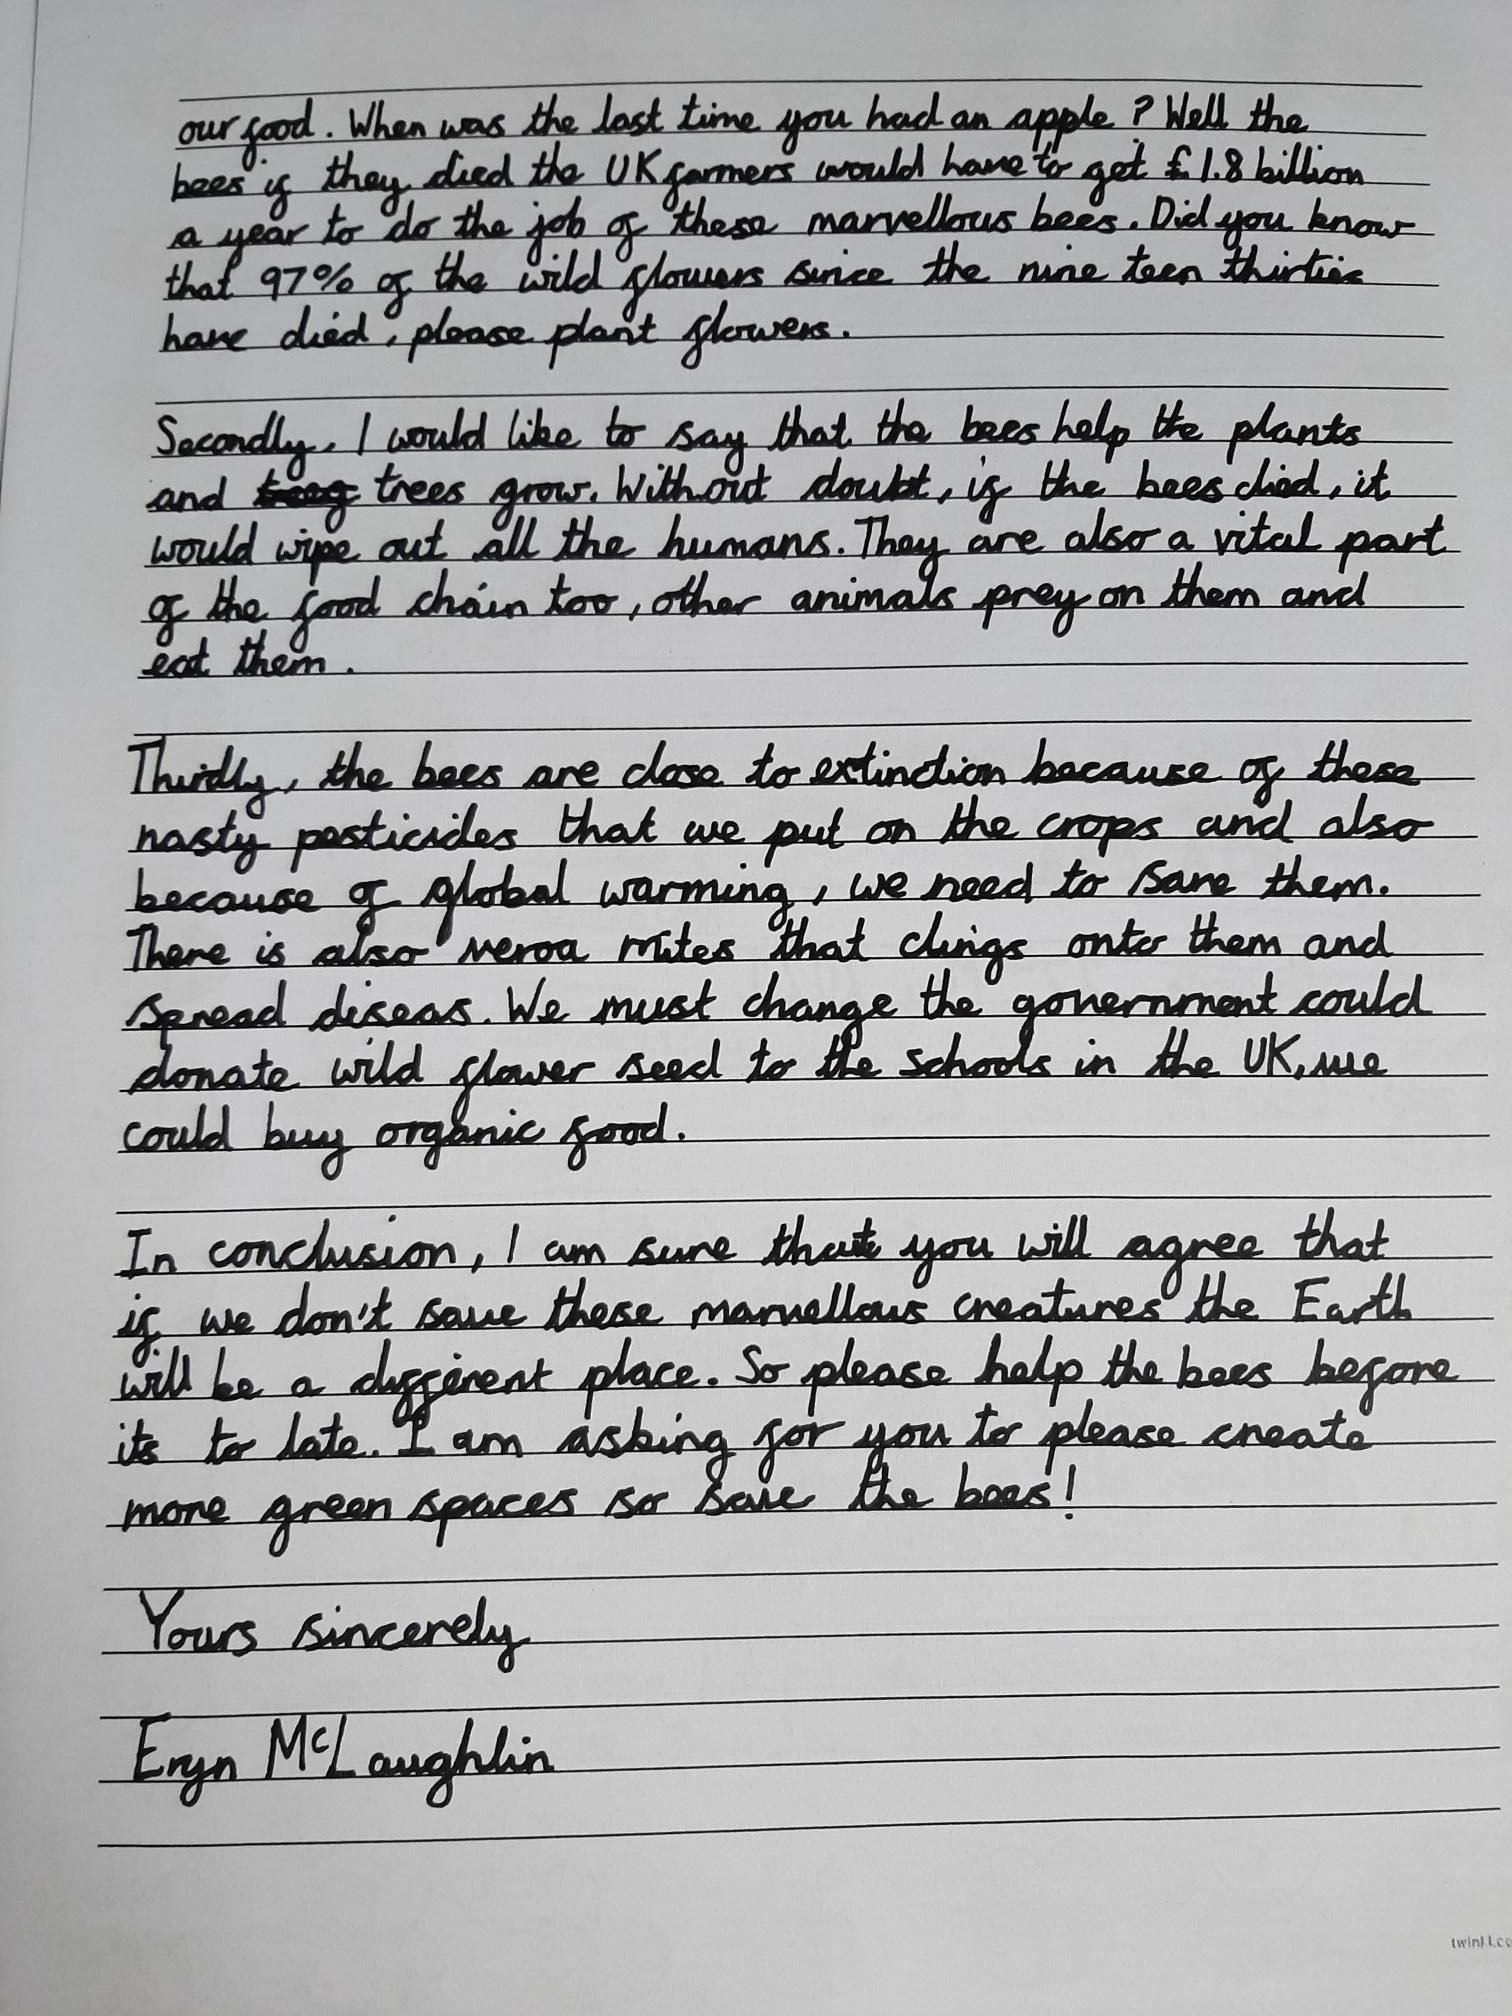 our food. When was the last time you had an apple? Well the
bees if they died the UK farmers would have to get £1.8 billion
a year to do the job of these marvellous bees. Did you know
that 97% of the wild flowers since the nine teen thirties
have died, please plant flowers.
Secondly, I would like to say that the bees help the plants
and trees grow. Without doubt, if the bees died, it
would wipe out all the humans. They are also a vital part
of the food chain too, other animals prey on them and
eat them.
Thirdly, the bees are close to extinction because of these
nasty pesticides that we put on the crops and also
because of global warming, we need to save them.
There is also veroa mites that clings onto them and
spread diseas. We must change the government could
donate wild flower seed to the schools in the UK, we
could buy organic food.
In conclusion, I am sure that you will agree that
if we don't save these marvellous creatures the Earth
will be a different place. So please help the bees before
its to late. I am asking for you to please create
more green spaces so save the bees!
Yours sincerely
Eryn McLaughlin